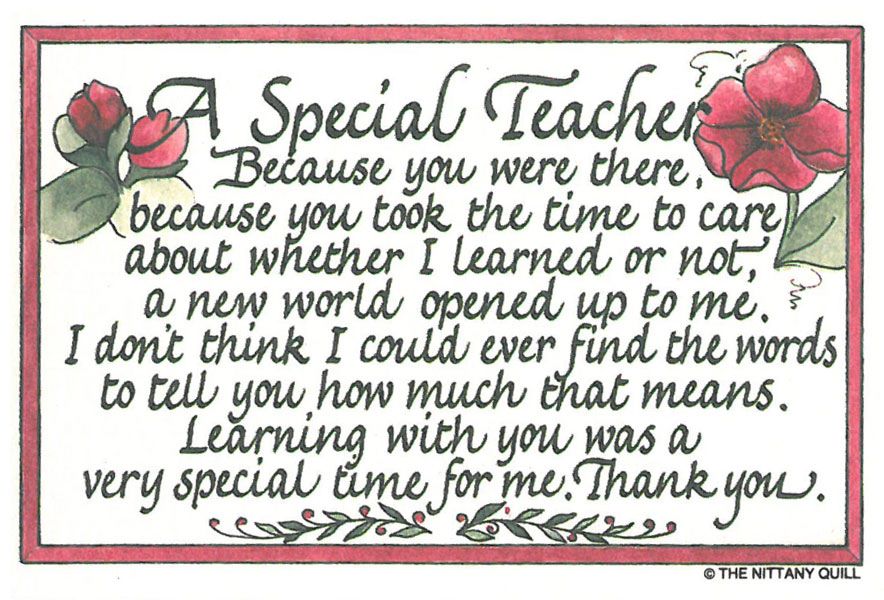 A Special Teacher
Because you were there,
because you took the time to care
about whether I learned or not,
a new world opened up to me.
I don't think I could ever find the words
to tell you how much that means.
Learning with you was a
very special time for me. Thank you.
© THE NITTANY QUILL